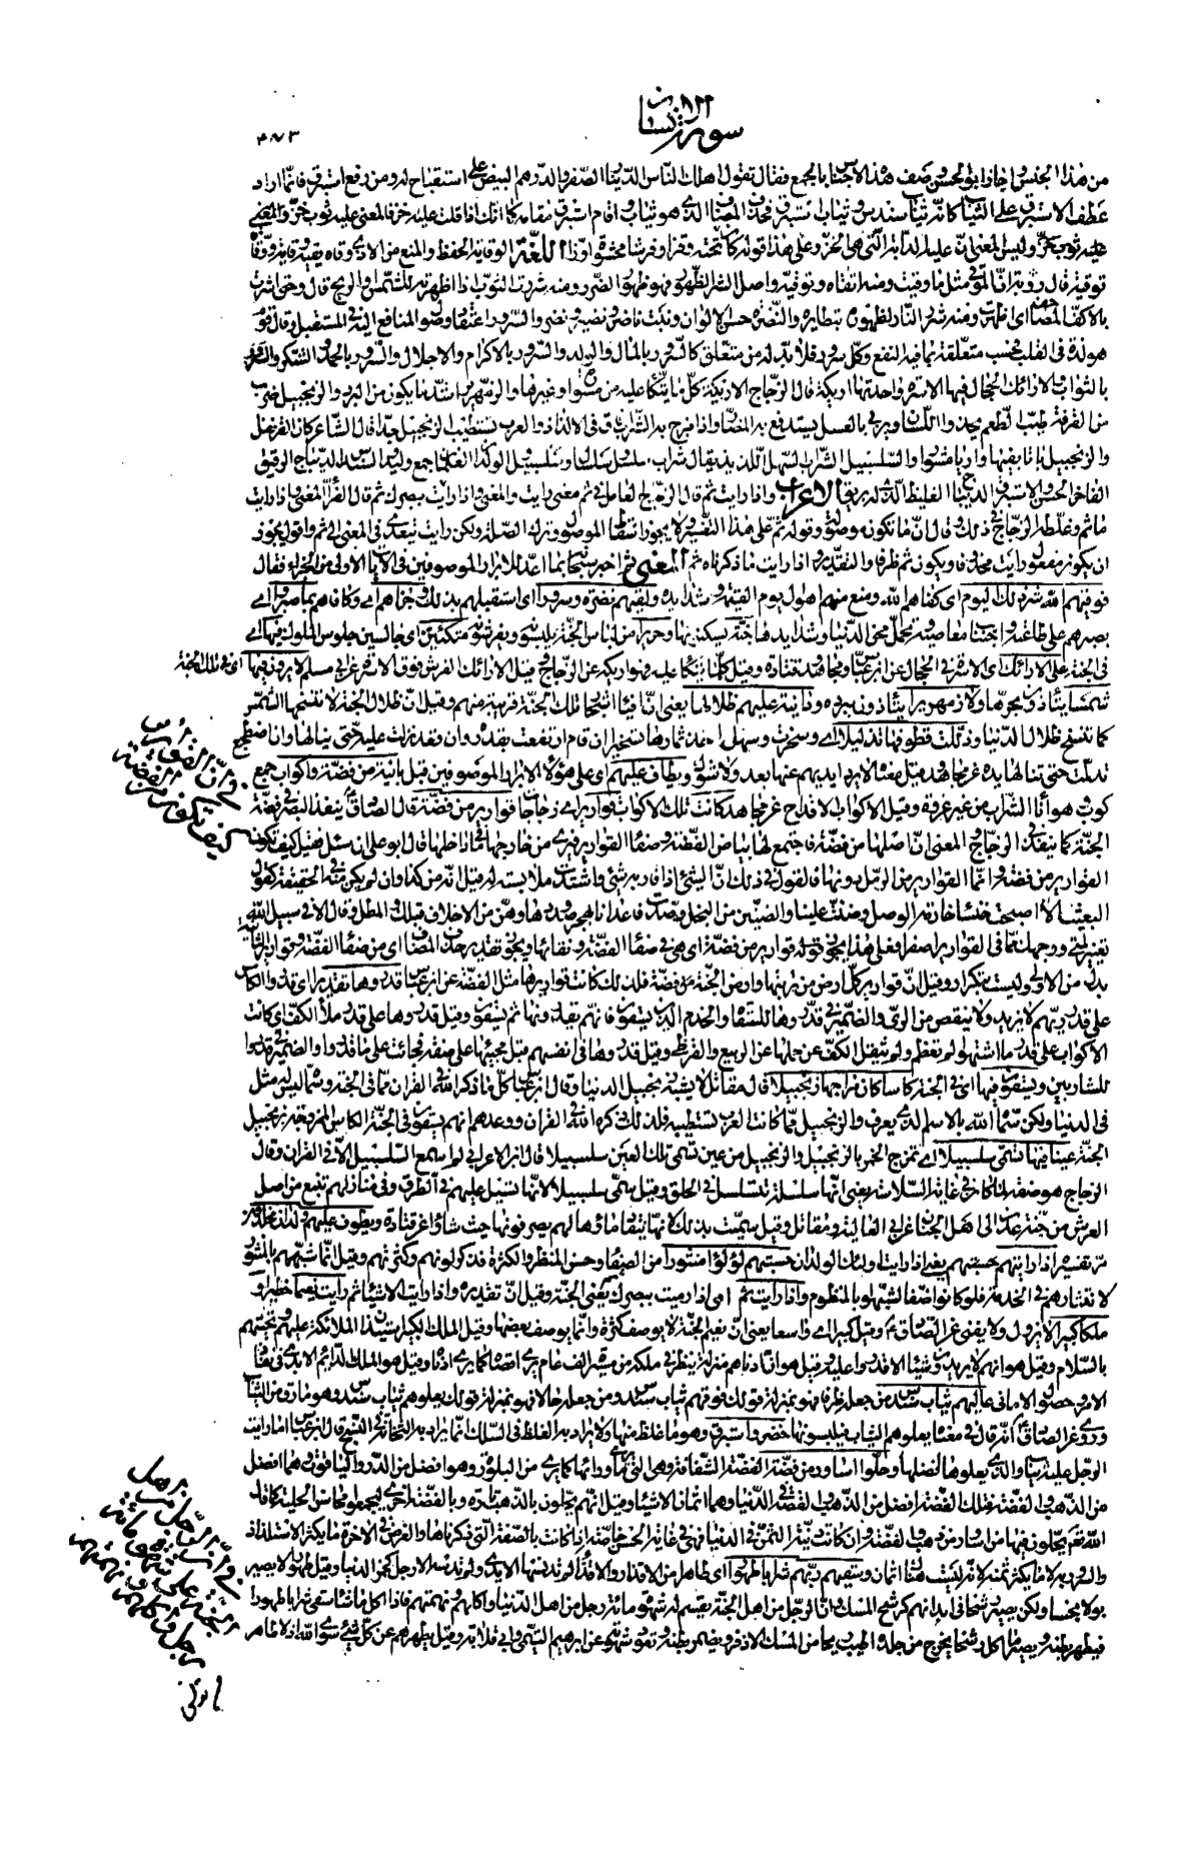 ٨٢٢
سورة الانسان
٤٧٣
من هذا الجنس واجاز ابو الحسن وصف هذه الاجناس بالجمع فقال تقول اهلك الناس الدينار الصفر والدرهم البيض على استقباح له ومن رفع استبرق فانما اراد
عطف الاستبرق على الثياب كانه ثياب سندس وثياب استبرق فحذف المضاف الذي هو ثياب واقام استبرق مقامه كما انك اذا قلت عليه خز فالمعنى عليه ثوب خز وليس المعنى
عليه ثوب خز وليس المعنى ان عليه الدابة التي هي الخز وعلى هذا قوله كان تحته وفرا وفرشا محشوا اوزا اللغة الوقاية الحفظ والمنع من الاذى وقاه يقيه وقاية ووقاه
توقية قال رؤبة ان الموقى مثل ما وقيت ومنه اتقاه وتوقيه واصل الشر الظهور فهو ظهور الضرر ومنه شررت الثوب اذا اظهرته للشمس او الريح قال وحتى اشرت
بالاكف المصاحف اى اظهرت ومنه شرر النار لظهوره بتطايره والنضرة حسن الالوان ونبت ناضر ونضير ونضر والسرور اعتقاد وصول المنافع اليه في المستقبل وقال قوم
هو لذة في القلب فحسب متعلقة بما فيه النفع وكل سرور فلا بد له من متعلق كالسرور بالمال والولد والسرور بالاكرام والاجلال والسرور بالحمد والشكر والسرور
بالثواب الارائك الحجال فيها الاسرة واحدتها اريكة قال الزجاج الاريكة كل ما يتكا عليه من مسورة او غيرها والزمهرير اشد ما يكون من البرد والزنجبيل ضرب
من القرفة طيب الطعم يحذو اللسان ويربى بالعسل يستدفع به المضار واذا مزج به الشراب فاق في الالذاذ والعرب تستطيب الزنجبيل جدا قال الشاعر كان القرنفل
والزنجبيل باتا بفيها واريا مشورا والسلسبيل الشراب السهل اللذيذ يقال شراب سلسل وسلسال وسلسبيل والولدان الغلمان جمع وليد والسندس الديباج الرقيق
الفاخر الحسن والاستبرق الديباج الغليظ الذى له بريق الاعراب واذا رايت ثم قال الزجاج العامل في ثم معنى رايت والمعنى واذا رايت ببصرك ثم قال الفراء المعنى واذا رايت
ما ثم وغلطه الزجاج في ذلك وقال ان ما تكون موصولة وقوله ثم على هذا التفسير لا يجوز اسقاط الموصول وترك الصلة ولكن رايت يتعدى في المعنى الى ثم واقول يجوز
ان يكون مفعول رايت محذوفا ويكون ثم ظرفا والتقدير اذا رايت ما ذكرناه ثم المعنى ثم اخبر سبحانه بما اعد للابرار الموصوفين في الايات الاولى من الجزاء فقال
فوقيهم الله شر ذلك اليوم اى كفاهم الله ومنع منهم اهوال يوم القيمة وشدايده ولقيهم نضرة وسرورا اى استقبلهم بذلك وجزاهم اى وكافاهم بما صبروا اى
بصبرهم على طاعته واجتناب معاصيه وتحمل محن الدنيا وشدايدها جنة يسكنونها وحريرا من لباس الجنة يلبسونه ويفرشونه متكئين اى جالسين جلوس الملوك فيها اى
في الجنة على الارائك اى الاسرة في الحجال عن ابن عباس ومجاهد وقتادة وقيل كلما يتكا عليه فهو اريكة عن الزجاج وقيل الارائك الفرش فوق الاسرة عن ابي مسلم لا يرون فيها اى في تلك الجنة
شمسا يتاذون بحرها ولا زمهريرا يتاذون ببرده ودانية عليهم ظلالها يعنى ان افياء اشجار تلك الجنة قريبة منهم وقيل ان ظلال الجنة لا تنسخها الشمس
كما تنسخ ظلال الدنيا وذللت قطوفها تذليلا اى وسخرت وسهل اخذ ثمارها تسخيرا ان قام ارتفعت بقدره وان قعد نزلت عليه حتى ينالها وان اضطجع
تدلت حتى تنالها يده عن مجاهد وقيل معناه لا يرد ايديهم عنها بعد ولا شوك ويطاف عليهم اى على هؤلاء الابرار الموصوفين قبل بانية من فضة واكواب جمع
كوب وهو اناء الشراب من غير عروة وقيل الاكواب الاقداح عن مجاهد كانت تلك الاكواب قوارير اى زجاجا قوارير من فضة قال الصادق ينفذ البصر في فضة
الجنة كما ينفذ في الزجاج والمعنى ان اصلها من فضة فاجتمع لها بياض الفضة وصفاء القوارير فيرى من خارجها ما في داخلها قال ابو على ان سئل فقيل كيف تكون
القوارير من فضة وانما القوارير من الرمل دونها فالقول في ذلك ان الشئ اذا قاربه شئ واشتدت ملابسته له قيل انه من كذا وان لم يكن منه في الحقيقة كقول
البعيث الا اصبحت خنساء خارمة الوصل وضنت علينا والضنين من البخل وصدت فاعدانا بهجر صدودها وهن من الاخلاف قبلك والمطل وقال الا في سبيل الله
تغيير لمتى ووجهك مما في القوارير اصفرا فعلى هذا يجوز قوله قوارير من فضة اى هي في صفاء الفضة ونقائها ويجوز تقدير حذف المضاف اى من صفاء الفضة وقوارير الثانية
بدل من الاولى وليست بتكرار وقيل ان قوارير كل ارض من تربتها وارض الجنة من فضة فلذلك كانت قواريرها مثل الفضة عن ابن عباس قدروها تقديرا اى قدروا الكاس
على قدر ريهم لا يزيد ولا ينقص من الرى والضمير في قدروها للسقاة والخدم الذين يسقون فانهم يقدرونها ثم يسقون وقيل قدروها على قدر ملأ الكف اى كانت
الاكواب على قدر ما اشتهوا لم تعظم ولم يثقل الكف عن حملها عن الربيع والقرظى وقيل قدروها في انفسهم قبل مجيئها على صفة فجائت على ما قدروا والضمير في قدروا
للشاربين ويسقون فيها اى في الجنة كاسا كان مزاجها زنجبيلا قال مقاتل لا يشبه زنجبيل الدنيا وقال ابن عباس كل ما ذكره الله في القران مما في الجنة وسماه ليس له مثل
في الدنيا ولكن سماه الله بالاسم الذى يعرف والزنجبيل مما كانت العرب تستطيبه فلذلك ذكره الله في القران ووعدهم انهم يسقون في الجنة الكاس الممزوجة بزنجبيل
الجنة عينا فيها تسمى سلسبيلا اى تمزج الخمر بالزنجبيل والزنجبيل من عين تسمى تلك العين سلسبيلا قال ابن الاعرابى لم اسمع السلسبيل الا في القران وقال
الزجاج هو صفة لما كان في غاية السلاسة يعنى انها سلسلة تتسلسل في الحلق وقيل سمى سلسبيلا لانها تسيل عليهم في الطرق وفي منازلهم تنبع من اصل
العرش من جنة عدن الى اهل الجنان عن ابي العالية ومقاتل وقيل سميت بذلك لانها ينقاد ماؤها لهم يصرفونها حيث شاؤا عن قتادة ويطوف عليهم ولدان مخلدون
مر تفسيره اذا رايتهم حسبتهم يعنى اذا رايت اولئك الولدان حسبتهم لؤلؤا منثورا من الصفاء وحسن المنظر والكثرة فذكر لونهم وكثرتهم وقيل انما شبههم بالمنثور
لانتثارهم في الخدمة فلو كانوا صفا لشبهوا بالمنظوم واذا رايت ثم اى اذا رميت ببصرك يعنى الجنة وقيل ان تقديره واذا رايت الاشياء ثم رايت نعيما خطيرا و
ملكا كبيرا لا يزول ولا يفنى عن الصادق ع وقيل كبيرا اى واسعا يعنى ان نعيم الجنة لا يوصف كثرة وانما يوصف بعضها وقيل الملك الكبير استيذان الملائكة عليهم وتحيتهم
بالسلام وقيل هو انهم لا يريدون شيئا الا قدروا عليه وقيل هو ان ادناهم منزلة ينظر في ملكه من مسيرة الف عام يرى اقصاه كما يرى ادناه وقيل هو الملك الدائم الابدى في نفاذ
الامر وحصول الامانى عاليهم ثياب سندس من جعله ظرفا فهو بمنزلة قولك فوقهم ثياب سندس ومن جعله حالا فهو بمنزلة قولك يعلوهم ثياب سندس وهو ما رق من الثياب
وروى عن الصادق انه قال في معناه يعلوهم الثياب فيلبسونها خضر واستبرق وهو ما غلظ منها ولا يراد به الغلظ في السلك انما يراد به الثخانة في النسج قال ابن عباس اما رايت
الرجل عليه ثياب والذى يعلوها افضلها وحلوا اساور من فضة الفضة الشفافة وهى التي يرى ما ورائها كما يرى من البلورة وهو افضل من الدر والياقوت وهما افضل
من الذهب والفضة فتلك الفضة افضل من الذهب والفضة في الدنيا وهما اثمان الاشياء وقيل انهم يحلون بالذهب تارة وبالفضة اخرى ليجمعوا محاسن الحلية كما قال
الله تعم يحلون فيها من اساور من ذهب والفضة وان كانت دنية الثمن في الدنيا فهى في غاية الحسن خاصة اذا كانت بالصفة التي ذكرناها والغرض في الاخرة ما يكثر الاستلذاذ
والسرور به لا ما يكثر ثمنه لانه ليست هناك اثمان وسقيهم ربهم شرابا طهورا اى طاهرا من الاقذار والاقذاء لم تدنسها الايدى ولم تدنسه الارجل كخمر الدنيا وقيل طهورا لا يصير
بولا نجسا ولكن يصير رشحا في ابدانهم كرشح المسك وان الرجل من اهل الجنة يقسم له شهوة مائة رجل من اهل الدنيا واكلهم ونهمتهم فاذا اكل ما شاء سقى شرابا طهورا
فيطهر بطنه ويصير ما اكل رشحا يخرج من جلده اطيب ريحا من المسك الاذفر ويضمر بطنه وتعود شهوته عن ابراهيم التيمى وابي قلابة وقيل يطهرهم عن كل شئ سوى الله اذ لا طاهر